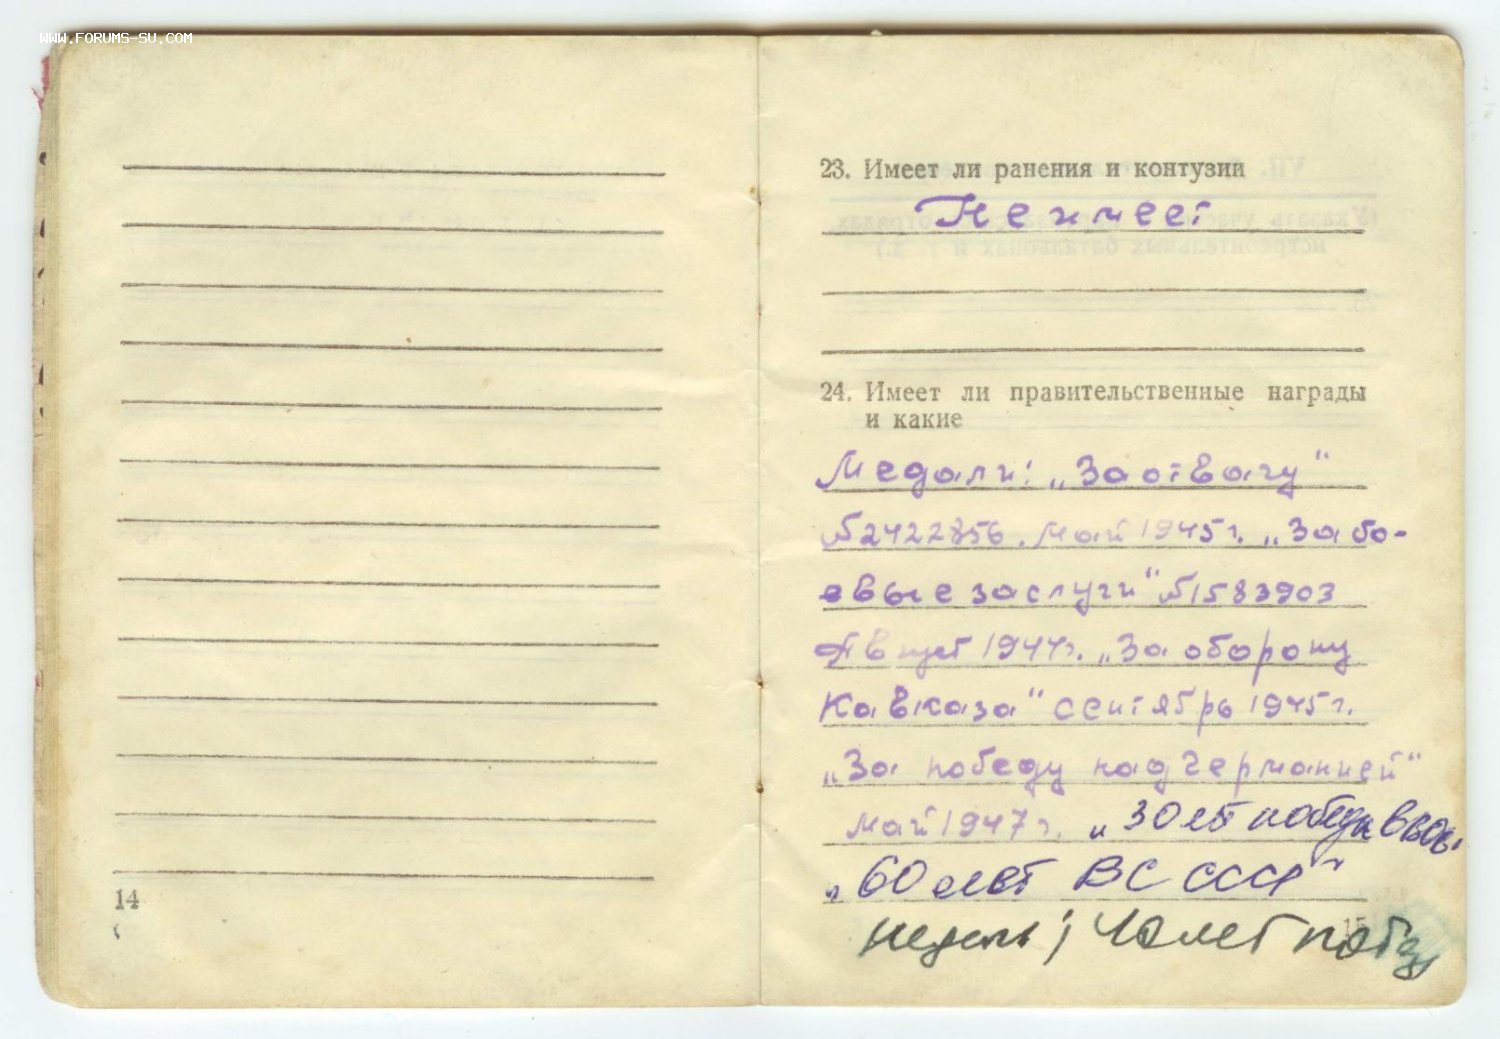 WWW.FORUMS-SU.COM
14
23. Имеет ли ранения и контузии
Не имеет
24. Имеет ли правительственные награды
и какие
Медали: „За отвагу“
№2422856. Май 1945г. „За бо-
евые заслуги“ №1583903
Август 1944г. „За оборону
Кавказа“ сентябрь 1945г.
„За победу над Германией“
май 1947г. „30 лет победы в ВОВ“
„60 лет ВС СССР“
медаль; 40 лет победы
15